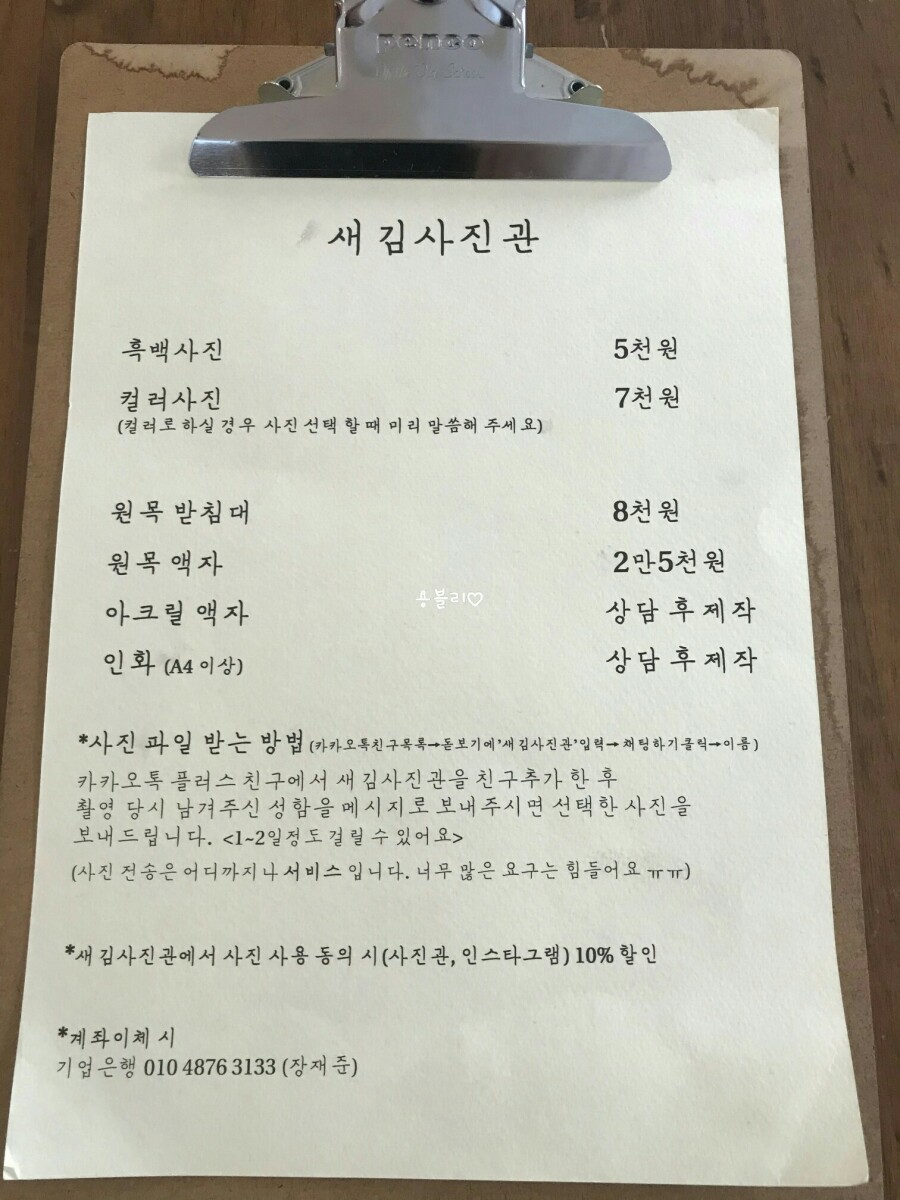 penco
새김사진관
흑백사진 5천원
컬러사진 7천원
(컬러로 하실 경우 사진 선택 할 때 미리 말씀해 주세요)
원목 받침대 8천원
원목 액자 2만5천원
아크릴 액자 상담 후 제작
인화 (A4 이상) 상담 후 제작
용블리♡
*사진 파일 받는 방법 (카카오톡친구목록→돋보기에'새김사진관'입력→채팅하기클릭→이름)
카카오톡 플러스 친구에서 새김사진관을 친구추가 한 후
촬영 당시 남겨주신 성함을 메시지로 보내주시면 선택한 사진을
보내드립니다. <1~2일정도 걸릴 수 있어요>
(사진 전송은 어디까지나 서비스 입니다. 너무 많은 요구는 힘들어요 ㅠㅠ)
*새김사진관에서 사진 사용 동의 시(사진관, 인스타그램) 10% 할인
*계좌이체 시
기업은행 010 4876 3133 (장재준)